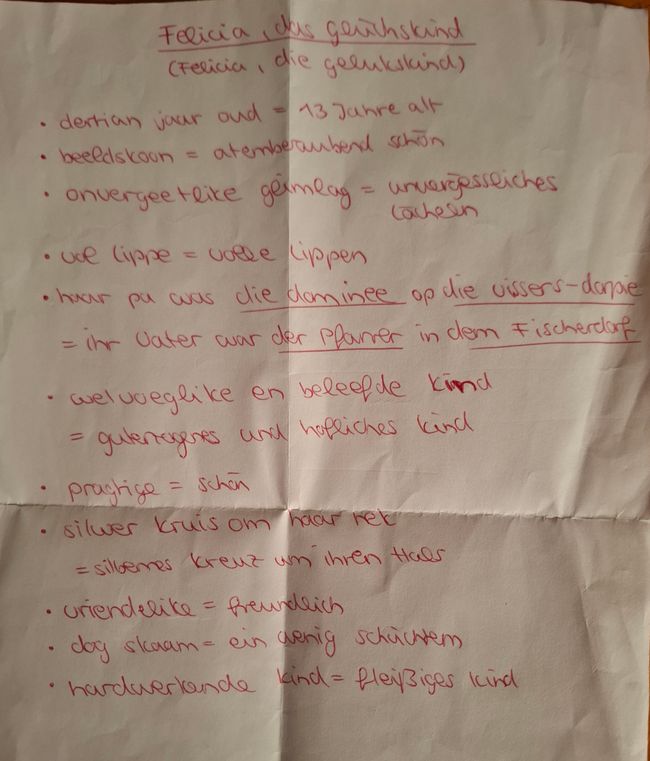 Felicia, das glückskind
(Felicia, die gelukskind)
• dertian jaar oud = 13 Jahre alt
• beeldskoon = atemberaubend schön
• onvergeetlike glimlag = unvergessliches
Lächeln
• vol lippe = volle Lippen
• haar pa was die dominee op die vissers-dorpie
= ihr Vater war der Pfarrer in dem Fischerdorf
• welvoeglike en beleefde kind
= guterzogenes und höfliches kind
• pragtige = schön
• silwer kruis om haar nek
= silbernes kreuz um ihren Hals
• vriendelike = freundlich
• dog skaam = ein wenig schüchtern
• hardwerkende kind = fleißiges kind